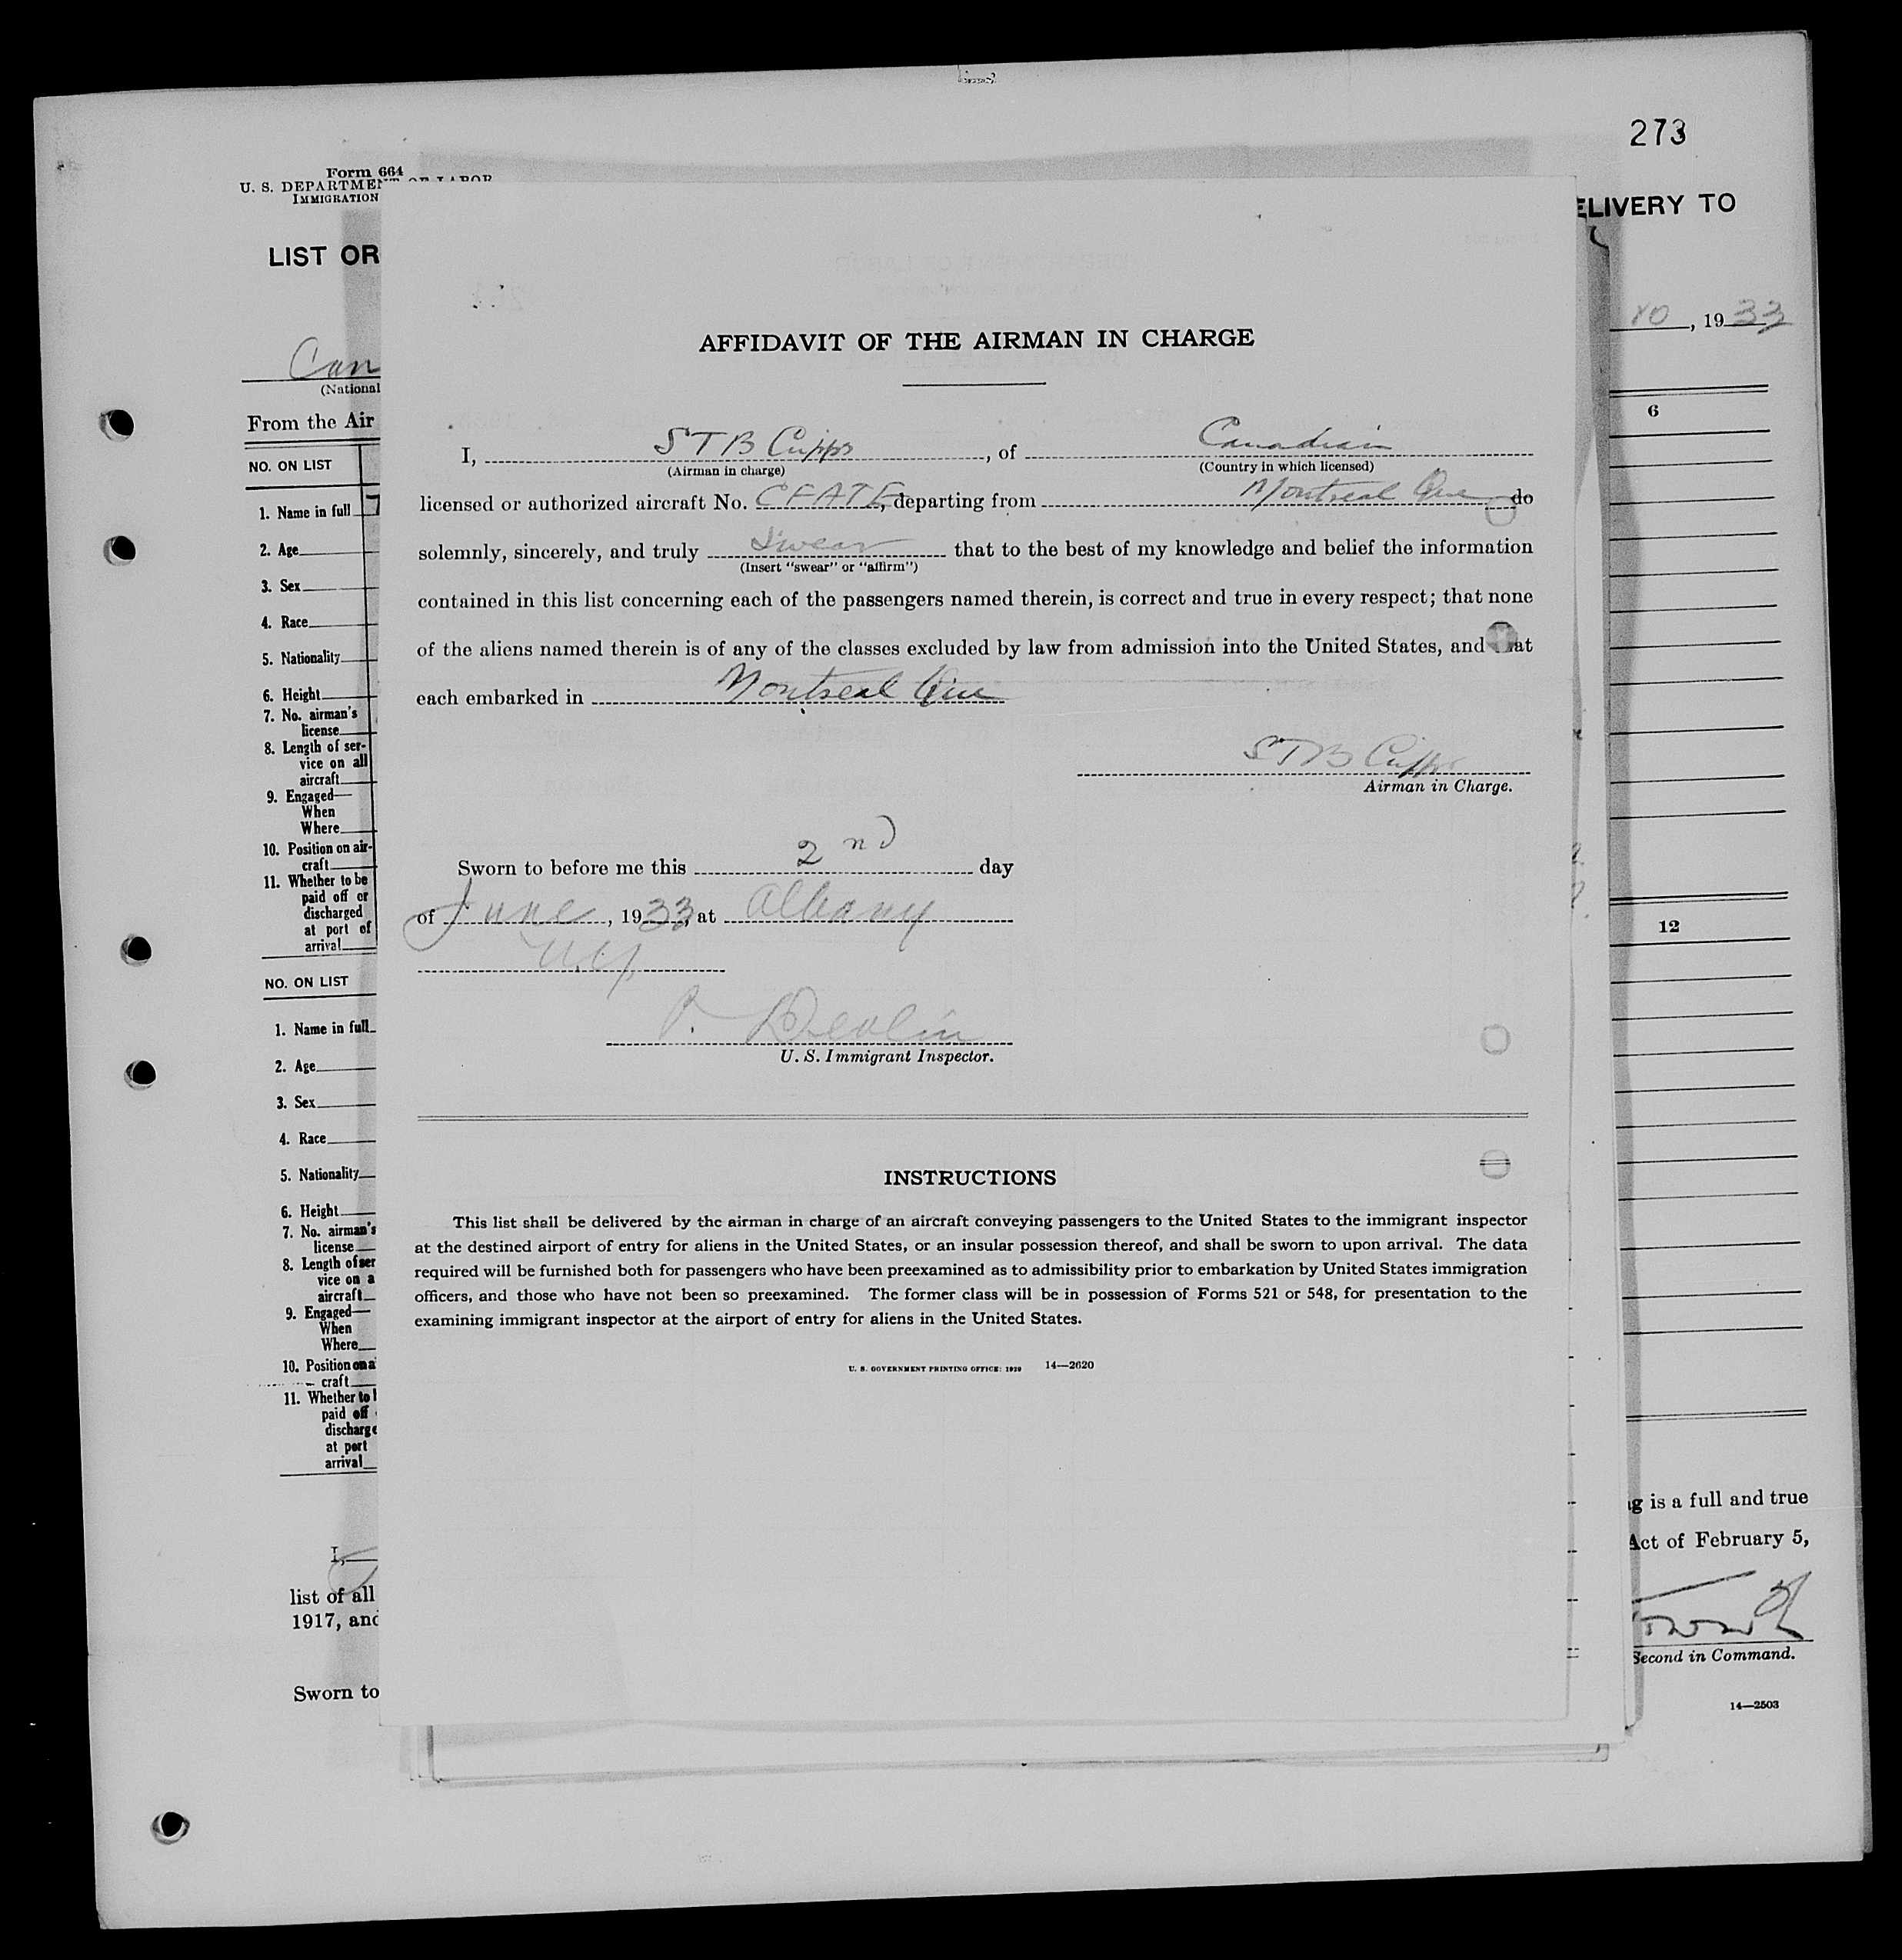 273
Form 664
U. S. DEPARTMENT OF LABOR
IMMIGRATION
LIST OR
ELIVERY TO
, 1933
Can
(National
From the Air
NO. ON LIST
6
1. Name in full
2. Age
3. Sex
4. Race
5. Nationality
6. Height
7. No. airman's
license
8. Length of ser-
vice on all
aircraft
9. Engaged—
When
Where
10. Position on air-
craft
11. Whether to be
paid off or
discharged
at port of
arrival
NO. ON LIST
12
1. Name in full
2. Age
3. Sex
4. Race
5. Nationality
6. Height
7. No. airman's
license
8. Length of ser
vice on a
aircraft
9. Engaged—
When
Where
10. Position on a
craft
11. Whether to b
paid off
discharge
at port
arrival
I,
list of all
1917, and
Sworn to
g is a full and true
Act of February 5,
Second in Command.
14—2503
AFFIDAVIT OF THE AIRMAN IN CHARGE
I, STB Cripps, of Canadian
(Airman in charge) (Country in which licensed)
licensed or authorized aircraft No. CFATE, departing from Montreal Que do
solemnly, sincerely, and truly Swear that to the best of my knowledge and belief the information
(Insert "swear" or "affirm")
contained in this list concerning each of the passengers named therein, is correct and true in every respect; that none
of the aliens named therein is of any of the classes excluded by law from admission into the United States, and that
each embarked in Montreal Que
STB Cripps
Airman in Charge.
Sworn to before me this 2nd day
of June, 1933, at Albany
N.Y.
P. Devlin
U. S. Immigrant Inspector.
INSTRUCTIONS
This list shall be delivered by the airman in charge of an aircraft conveying passengers to the United States to the immigrant inspector
at the destined airport of entry for aliens in the United States, or an insular possession thereof, and shall be sworn to upon arrival. The data
required will be furnished both for passengers who have been preexamined as to admissibility prior to embarkation by United States immigration
officers, and those who have not been so preexamined. The former class will be in possession of Forms 521 or 548, for presentation to the
examining immigrant inspector at the airport of entry for aliens in the United States.
U. S. GOVERNMENT PRINTING OFFICE: 1929 14—2620